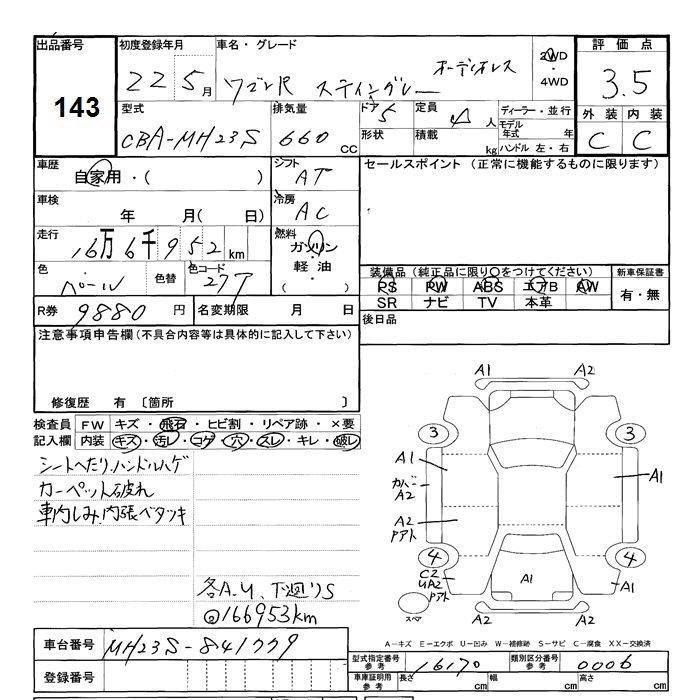 出品番号
143
初度登録年月
22 5月
車名・グレード
ワゴンR スティングレー オーディオレス
2WD
・
4WD
評価点
3.5
外装 内装
C C
型式
CBA-MH23S
排気量
660 CC
ドア 5
形状
定員 4 人
積載 kg
ディーラー・並行
モデル年式 年
ハンドル 左・右
車歴
自家用・( )
シフト
AT
車検
年 月( 日)
冷房
AC
走行
16万6千952km
燃料
ガソリン
・
軽油
・
( )
色
パール
色替
色コード
27T
R券 9880 円
名変期限 月 日
セールスポイント (正常に機能するものに限ります)
装備品 (純正品に限り○をつけてください)
PS PW ABS エアB AW
SR ナビ TV 本革
新車保証書
有・無
後日品
注意事項申告欄(不具合内容等は具体的に記入して下さい)
修復歴 有 〔箇所 〕
検査員記入欄
FW キズ・飛石・ヒビ割・リペア跡・×要
内装 キズ・汚レ・コゲ・穴・スレ・キレ・破レ
シートへたり、ハンドルハゲ
カーペット破れ
車内しみ、内張ベタツキ
各A.U、下廻りS
@166953km
A1 A2
3 3
A1 A1
カバーA2
A2
Pアト
4 4
C2
UA2
Pアト
A1 A1
スペア
A2 A2
A-キズ E-エクボ U-凹み W-補修跡 S-サビ C-腐食 XX-交換済
車台番号 MH23S-841779
登録番号
型式指定番号 参考 16170
類別区分番号 参考 0006
車庫証明用 参考
長さ cm 幅 cm 高さ cm